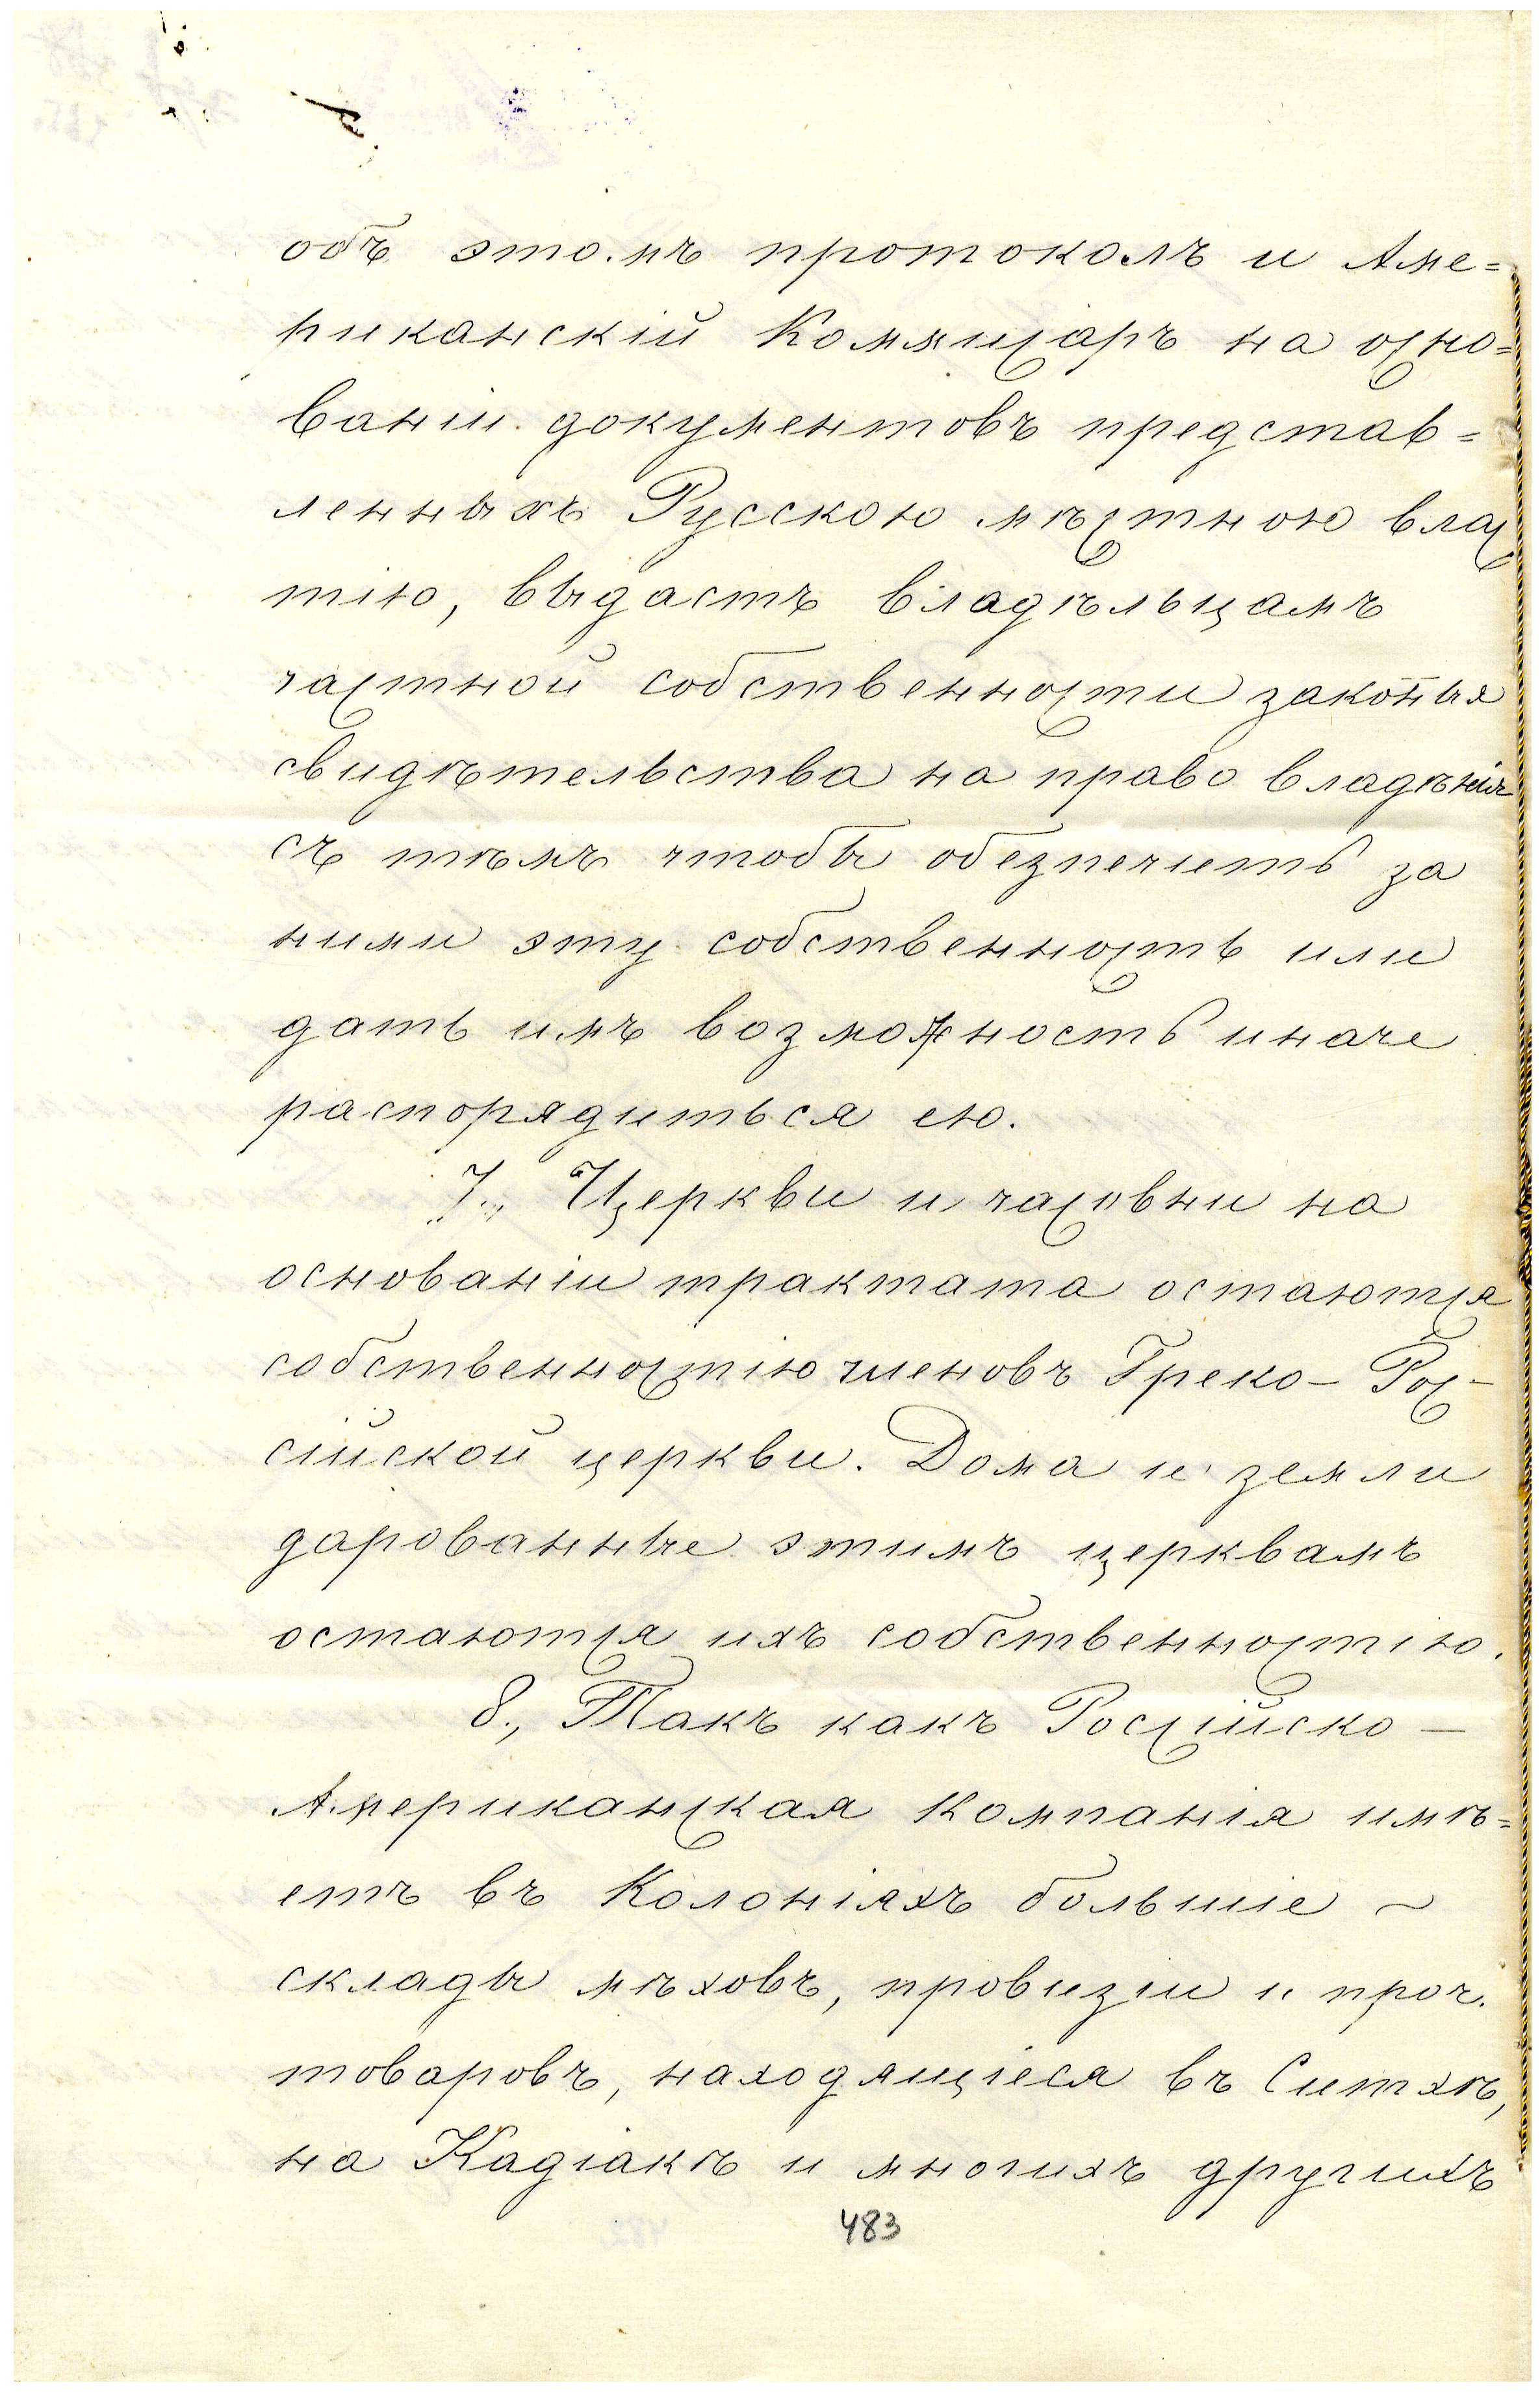 объ этомъ протоколъ и Аме=
риканскій Коммисаръ на осно=
ваніи документовъ представ=
ленныхъ Русскою мѣстною влас
тію, выдастъ владѣльцамъ
частной собственности законныя
свидѣтельства на право владѣнія
съ тѣмъ чтобы обезпечить за
ними эту собственность или
дать имъ возможность иначе
распорядиться ею.
7., Церкви и часовни на
основаніи трактата остаются
собственностію членовъ Греко-Рос-
сійской церкви. Дома и земли
дарованные этимъ церквамъ
остаются ихъ собственностію.
8., Такъ какъ Россійско —
Американская компанія имѣ=
етъ въ Колоніяхъ большіе ~
склады мѣховъ, провизіи и проч.
товаровъ, находящіеся въ Ситхѣ,
на Кадіакѣ и многихъ другихъ
483